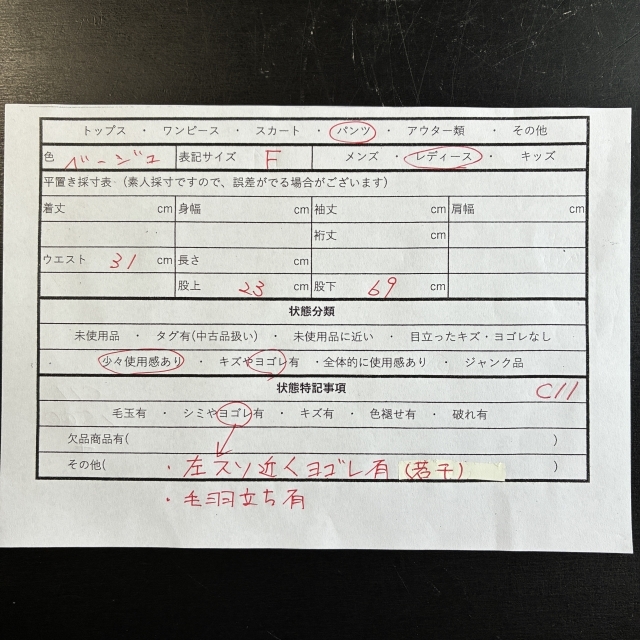 トップス ・ ワンピース ・ スカート ・ パンツ ・ アウター類 ・ その他
色 ベージュ 表記サイズ F メンズ ・ レディース ・ キッズ
平置き採寸表 (素人採寸ですので、誤差がでる場合がございます)
着丈 cm 身幅 cm 袖丈 cm 肩幅 cm
裄丈 cm
ウエスト 31 cm 長さ cm
股上 23 cm 股下 69 cm
状態分類
未使用品 ・ タグ有(中古品扱い) ・ 未使用品に近い ・ 目立ったキズ・ヨゴレなし
少々使用感あり ・ キズやヨゴレ有 ・全体的に使用感あり ・ ジャンク品
状態特記事項 C11
毛玉有 ・ シミやヨゴレ有 ・ キズ有 ・ 色褪せ有 ・ 破れ有
欠品商品有( )
その他( ・左スソ近くヨゴレ有 (若干) )
・毛羽立ち有